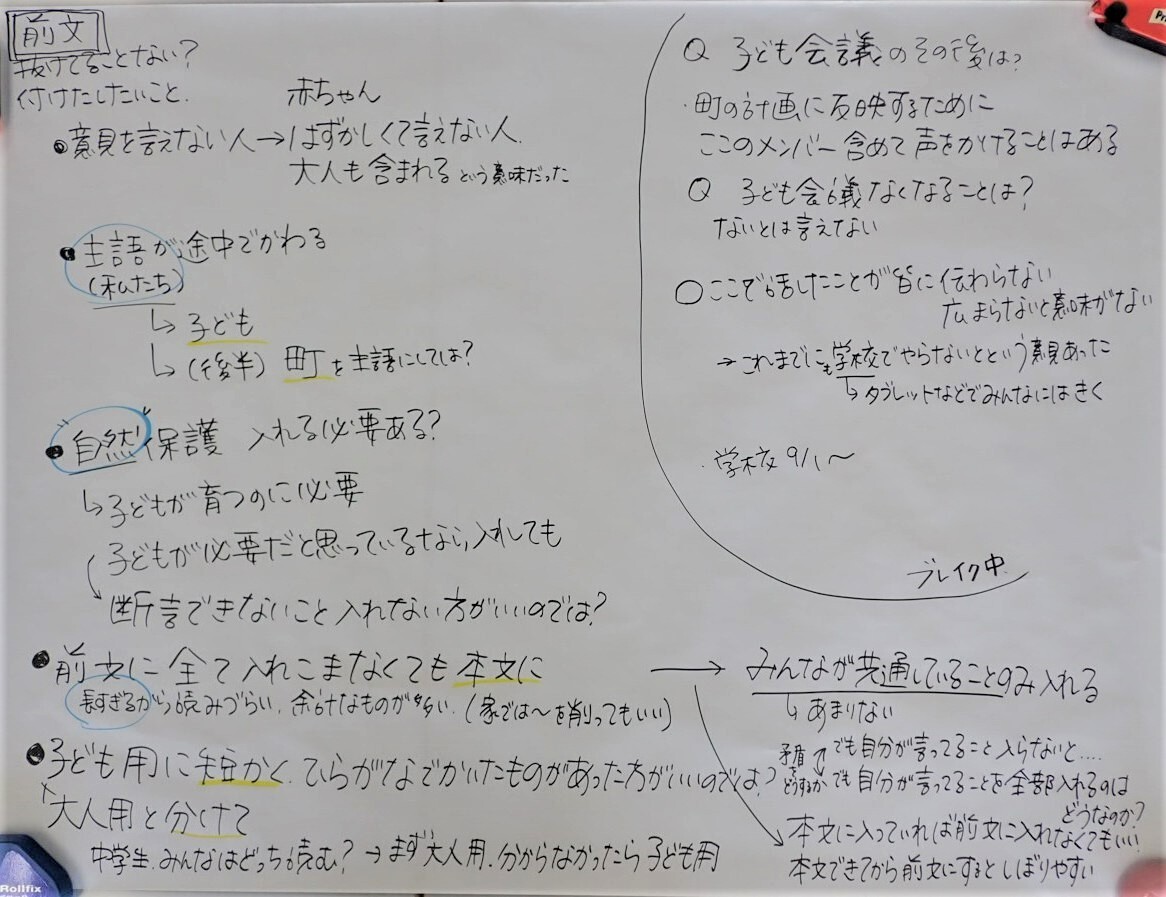 前文
抜けてることない?
付けたしたいこと.
赤ちゃん
●意見を言えない人→はずかしくて言えない人.
大人も含まれるという意味だった
●主語が途中でかわる
(私たち)
↳子ども
↳(後半) 町を主語にしては?
●自然保護 入れる必要ある?
↳子どもが育つのに必要
子どもが必要だと思っているなら入れしても
断言できないこと入れない方がいいのでは?
●前文に全て入れこまなくても本文に
長すぎるから読みづらい、余計なものが多い.(家では〜を削ってもいい)
●子ども用に短かく.ひらがなでかいたものがあった方がいいのでは?
大人用と分けて
中学生.みんなはどっち読む?→まず大人用.分からなかったら子ども用
→みんなが共通していることのみ入れる
↳あまりない
矛盾をどうするか
でも自分が言ってること入らないと....
でも自分が言ってることを全部入れるのは
どうなのか?
本文に入っていれば前文に入れなくてもいい!
本文できてから前文にするとしぼりやすい
Q 子ども会議のその後は?
・町の計画に反映するために
ここのメンバー含めて声をかけることはある
Q 子ども会議なくなることは?
ないとは言えない
○ここで話したことが皆に伝わらない
広まらないと意味がない
→これまでにも学校でやらないとという意見あった
↳タブレットなどでみんなにはきく
・学校9/1〜
ブレイク中
Rollfix